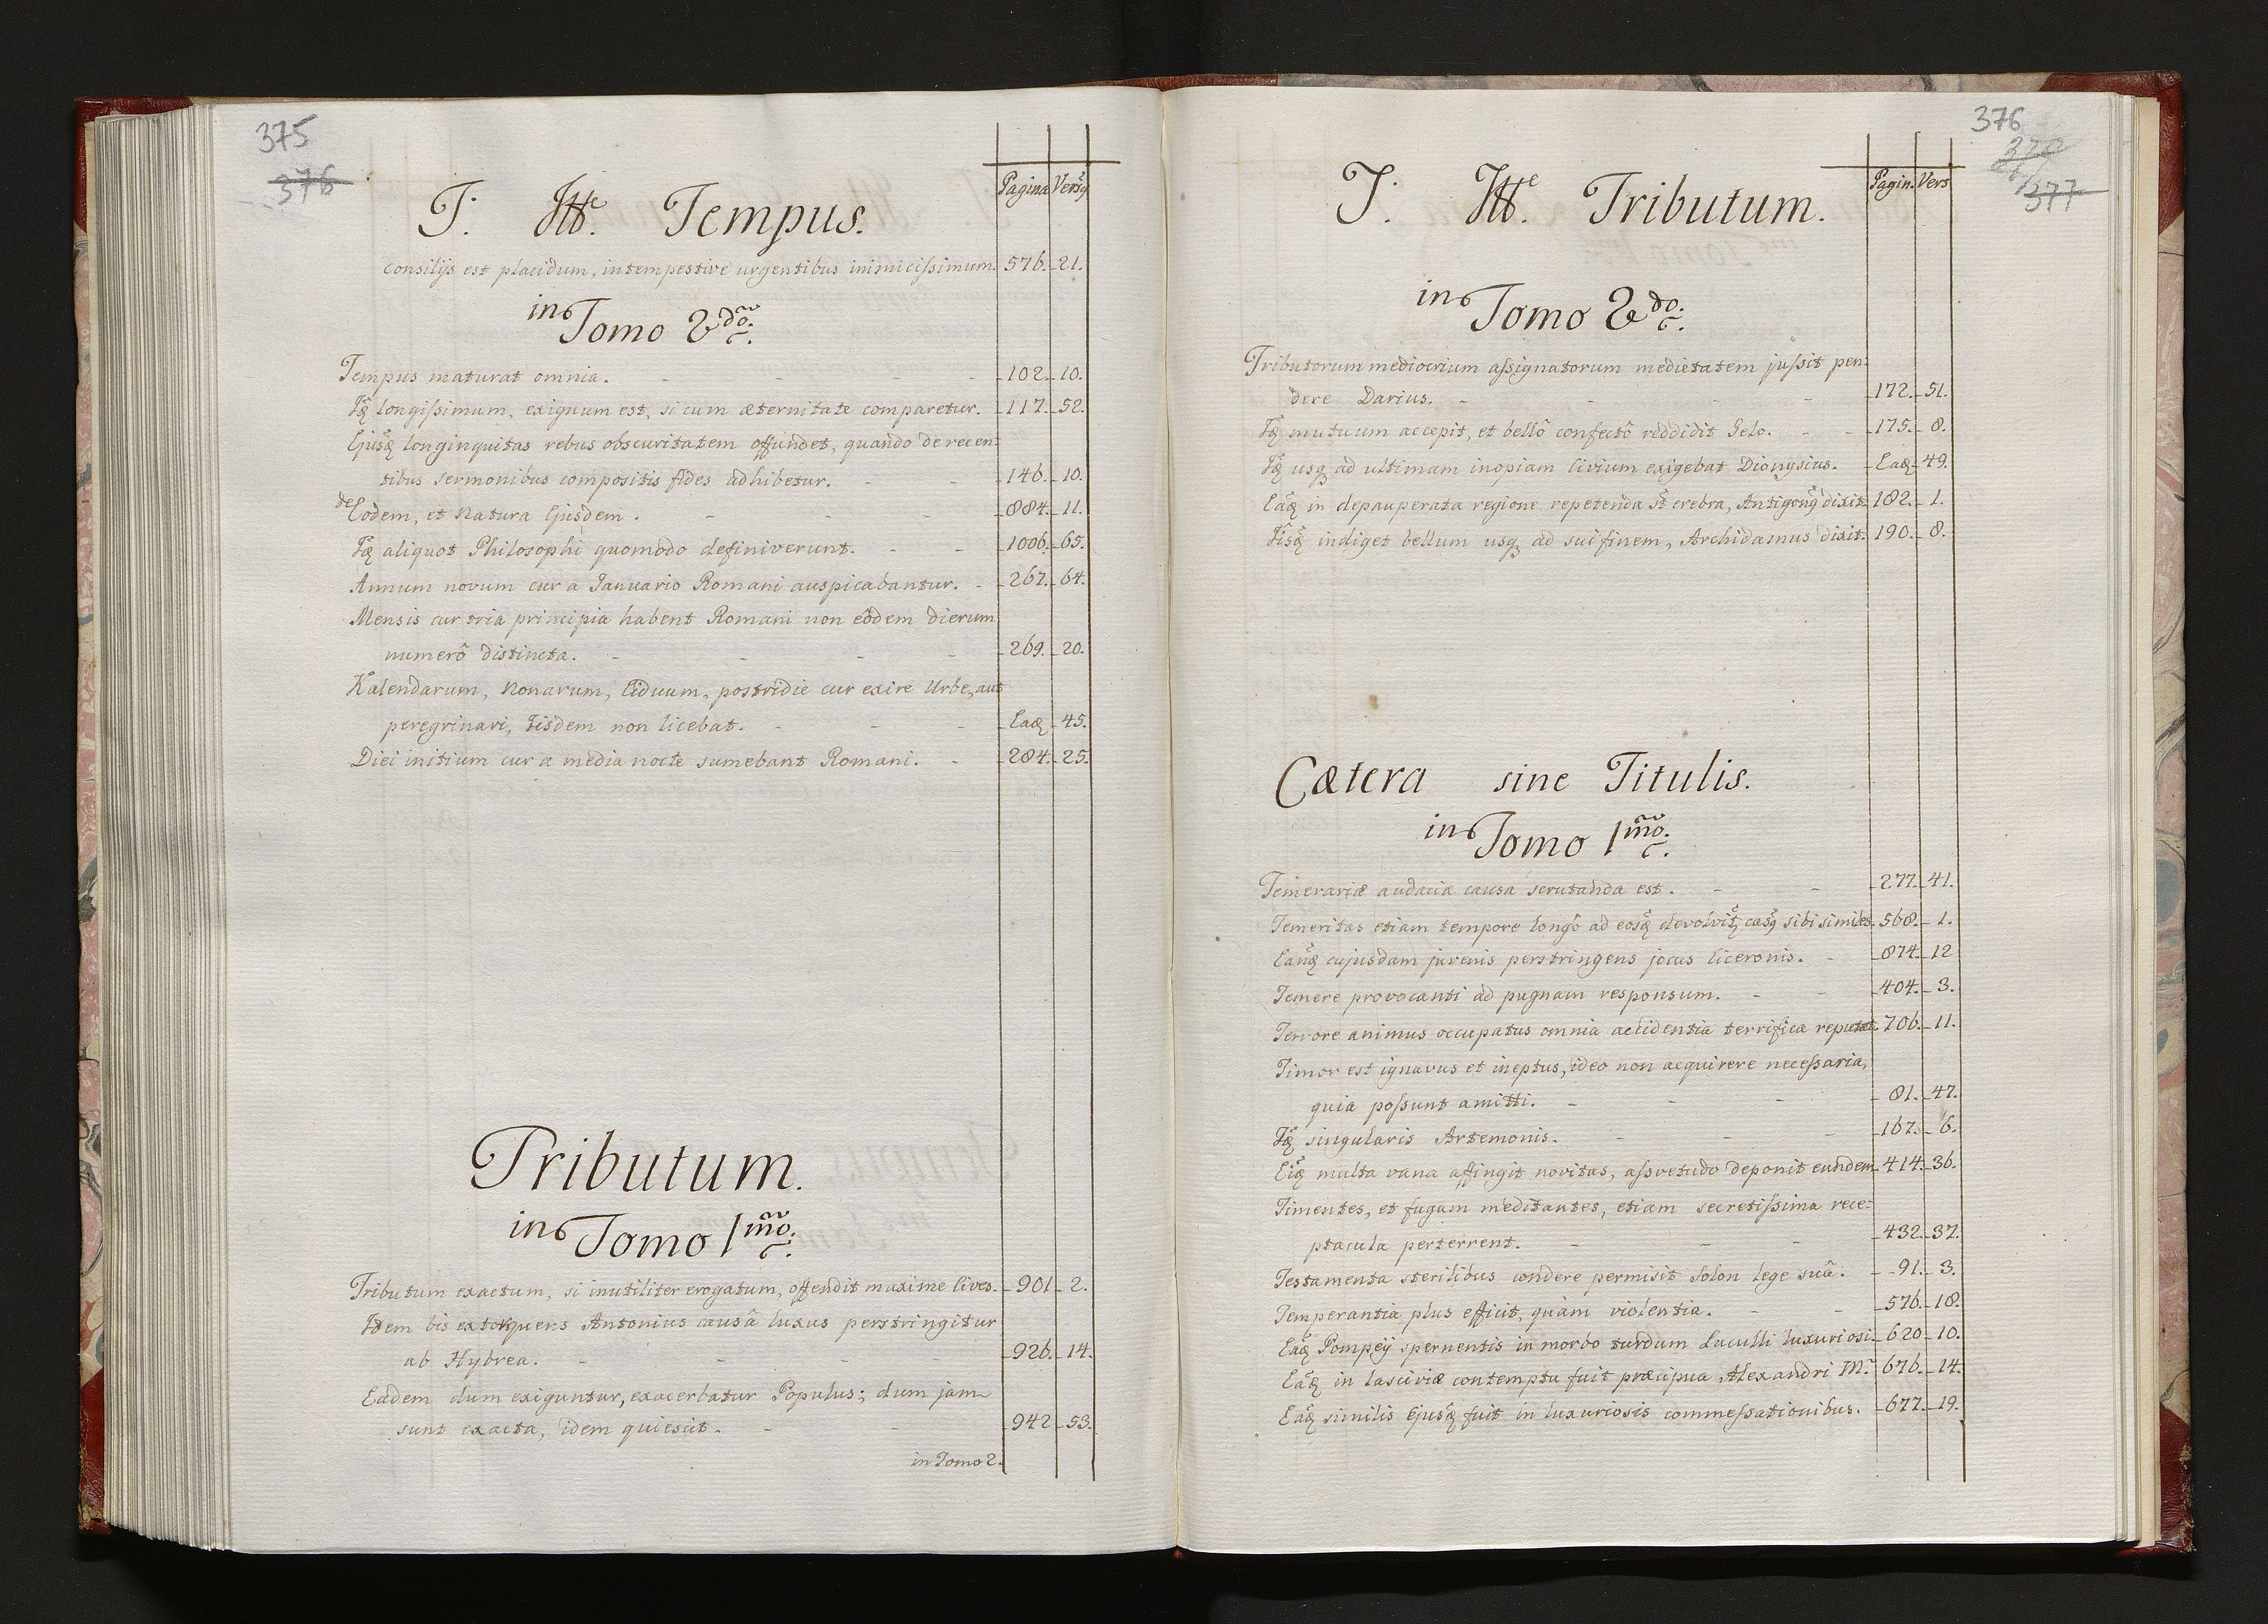 375
376
Pagina Versꝰ
T. Ttte. Tempus.
consilijs est placidum, intempestive urgentibus inimicissimum. 576. 21.
in Tomo 2do.
Tempus maturat omnia. - - - - 102. 10.
longissimum, exiguum est, si cum æternitate comparetur. 117. 52.
longinquitas rebus obscuritatem offundet, quando de recen=
tibus sermonibus compositis fides adhibetur. - - 146. 10.
de Eodem, et Natura Ejusdem. - - - 884. 11.
aliquot Philosophi quomodo definiverunt. - - 1006. 65.
Annum novum cur a Januario Romani auspicabantur. - 267. 64.
Mensis cur tria principia habent Romani non eôdem dierum
numerô distincta. - - - - 269. 20.
Kalendarum, Nonarum, Iiduum, postridie cur exire Urbe, aut
peregrinari, Iisdem non licebat. - - - Eaq 45.
Diei initium cur a media nocte sumebant Romani. - 284. 25.
Tributum.
in Tomo 1mo.
Tributum exactum, si inutiliter erogatum, offendit maxime Cives. 901 2.
Idem bis extorquens Antonius causâ luxus perstringitur
ab Hybrea. - - - - 926. 14.
Eadem dum exiguntur, exacerbatur Populus; dum jam
sunt exacta, idem quiescit. - - 942 53.
in Tomo 2.
376
377
Pagin. Vers
T. Ttte. Tributum.
in Tomo 2do.
Tributorum mediocrium assignatorum medietatem jussit pen=
dere Darius. - - - - 172. 51.
mutuum accepit, et bellô confectô reddidit Gelo. - - 175. 8.
usq ad ultimam inopiam Civium exigebat Dionysius. - Eaq 49.
in depauperata regione repetenda st crebra, Antigonꝰ dixit. 182. 1.
indiget bellum usq ad sui finem, Archidamus dixit. 190. 8.
Cætera sine Titulis.
in Tomo 1mo.
Temerariæ audaciæ causa scrutanda est. - - 277. 41.
Temeritas etiam tempore longô ad eosq devolvit casꝰ sibi similes. 568. 1.
cujusdam juvenis perstringens jocus Ciceronis. - 874. 12
Temere provocanti ad pugnam responsum. - - 404. 3.
Terrore animus occupatus omnia accidentia terrifica reputat. 706. 11.
Timor est ignavus et ineptus, ideo non acquirere necessaria,
quia possunt amitti. - - - 81. 47.
singularis Artemonis. - - - 167. 6.
multa vana affingit novitas, assvetudo deponit eundem 414. 36.
Timentes, et fugam meditantes, etiam secretissima rece=
ptacula perterrent. - - - 432. 37.
Testamenta sterilibus condere permisit Solon lege suâ. - 91. 3.
Temperantia plus efficit, quàm violentia. - - 576. 18.
Pompeÿ spernentis in morbo turdum Luculli luxuriosi. 620 10.
in lasciviæ contemptu fuit præcipua Alexandri M. 676. 14.
similis fuit in luxuriosis commessationibus. 677. 19.